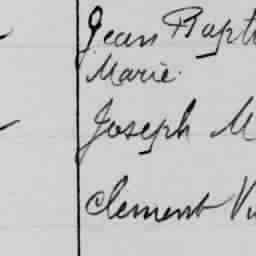 Jean Bapt
Marie
Joseph M
Clement Vi